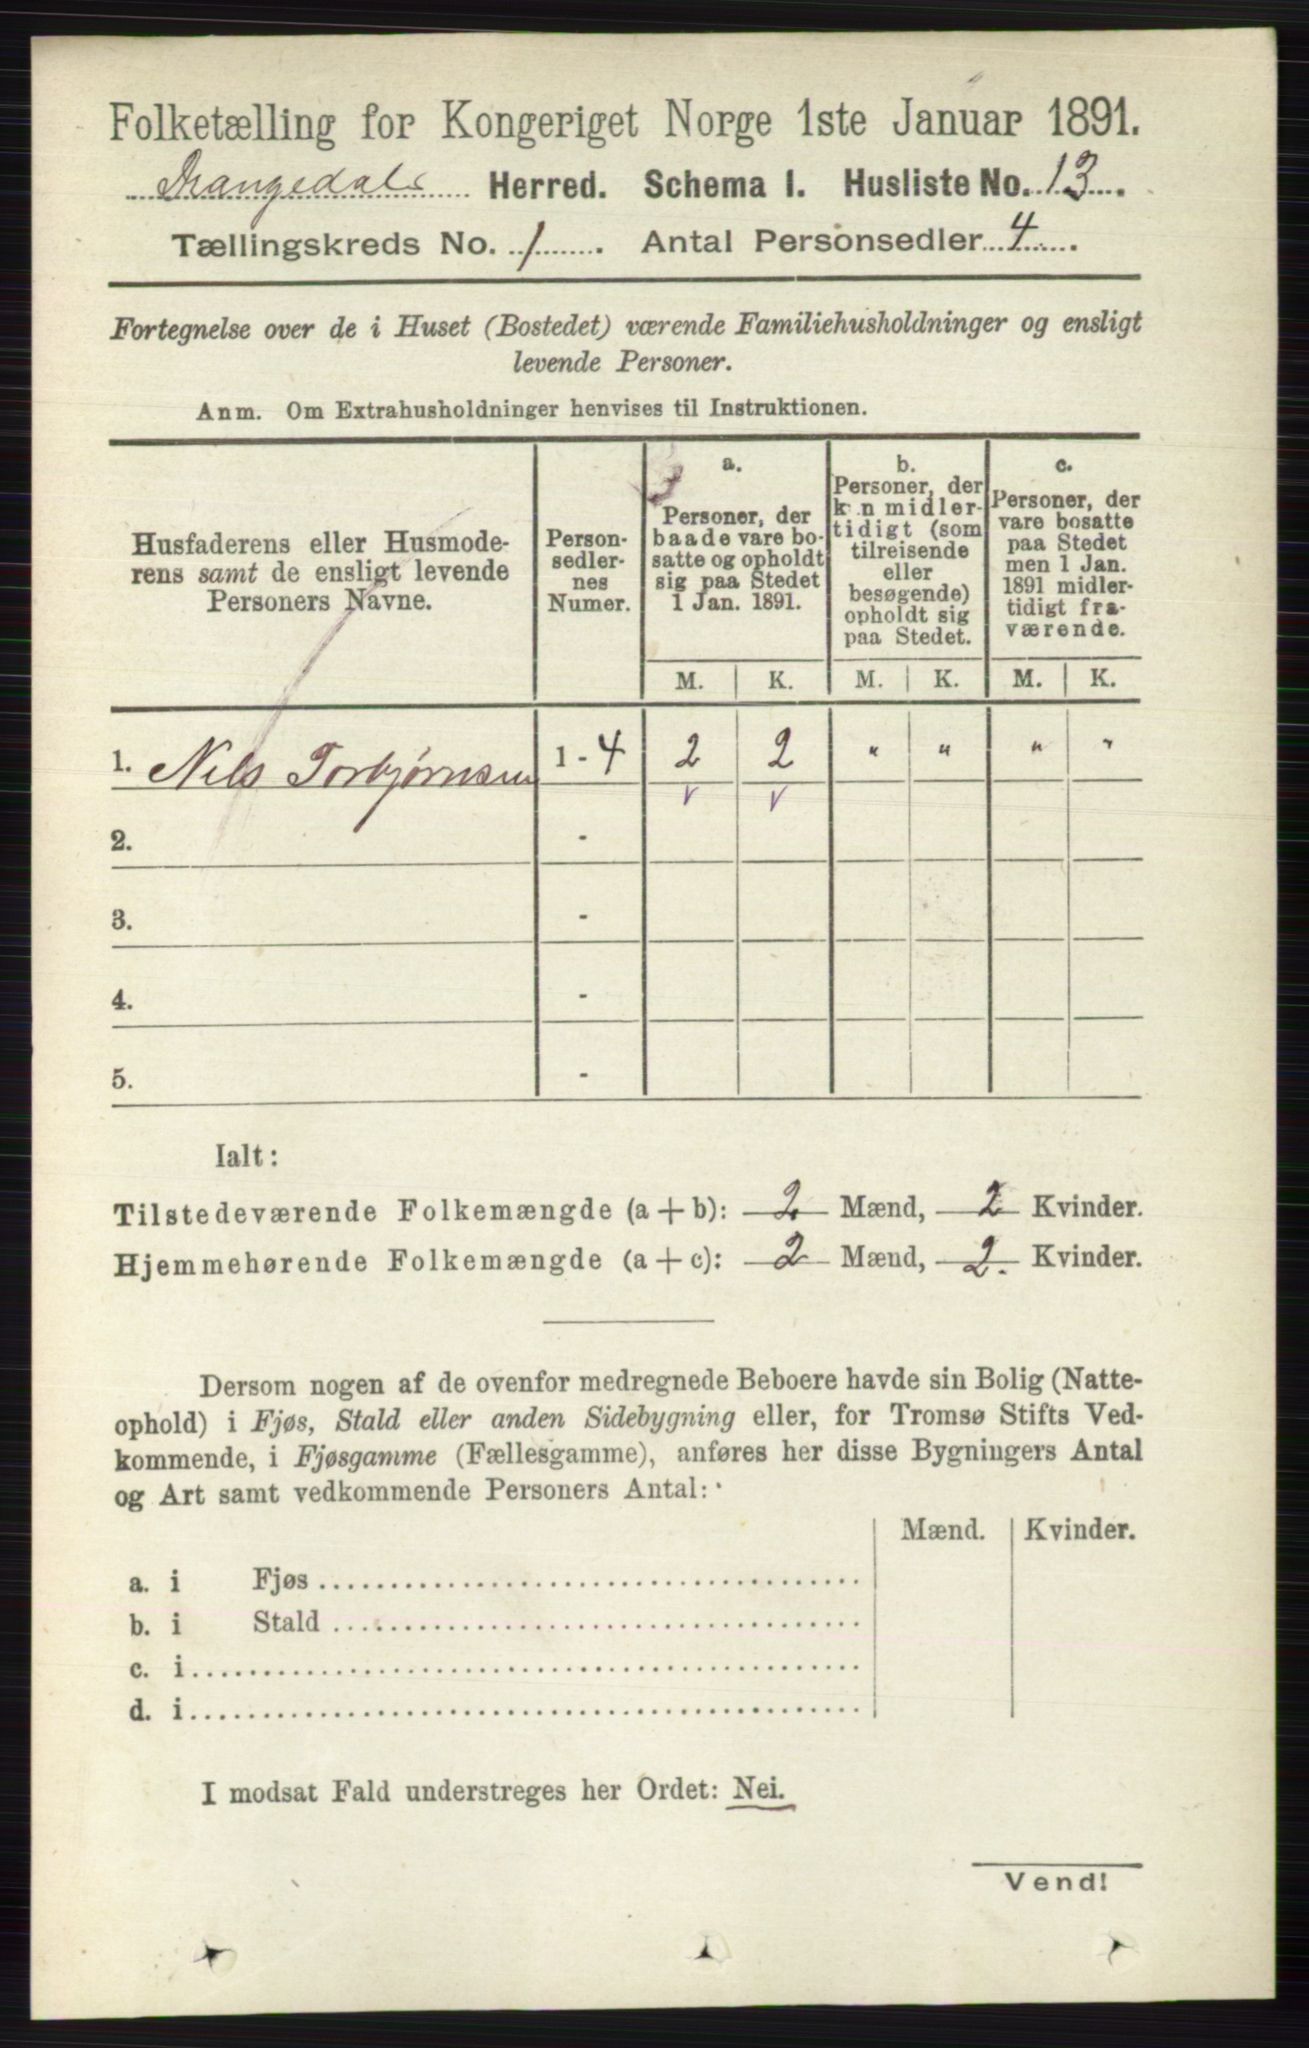 Folketælling for Kongeriget Norge 1ste Januar 1891.
Drangedals Herred. Schema I. Husliste No. 13.
Tællingskreds No. 1. Antal Personsedler 4.
Fortegnelse over de i Huset (Bostedet) værende Familiehusholdninger og ensligt
levende Personer.
Anm. Om Extrahusholdninger henvises til Instruktionen.
Husfaderens eller Husmode-
rens samt de ensligt levende
Personers Navne.
Person-
sedler-
nes
Numer.
a.
Personer, der
baade vare bo-
satte og opholdt
sig paa Stedet
1 Jan. 1891.
b.
Personer, der
kun midler-
tidigt (som
tilreisende
eller
besøgende)
opholdt sig
paa Stedet.
c.
Personer, der
vare bosatte
paa Stedet
men 1 Jan.
1891 midler-
tidigt fra-
værende.
M. K. M. K. M. K.
1. Nils Torbjørnsen 1 - 4 2 2 " " " "
v v
2. -
3. -
4. -
5. -
Ialt:
Tilstedeværende Folkemængde (a + b): 2 Mænd, 2 Kvinder.
Hjemmehørende Folkemængde (a + c): 2 Mænd, 2. Kvinder.
Dersom nogen af de ovenfor medregnede Beboere havde sin Bolig (Natte-
ophold) i Fjøs, Stald eller anden Sidebygning eller, for Tromsø Stifts Ved-
kommende, i Fjøsgamme (Fællesgamme), anføres her disse Bygningers Antal
og Art samt vedkommende Personers Antal:
Mænd. Kvinder.
a. i Fjøs
b. i Stald
c. i
d. i
I modsat Fald understreges her Ordet: Nei.
Vend!